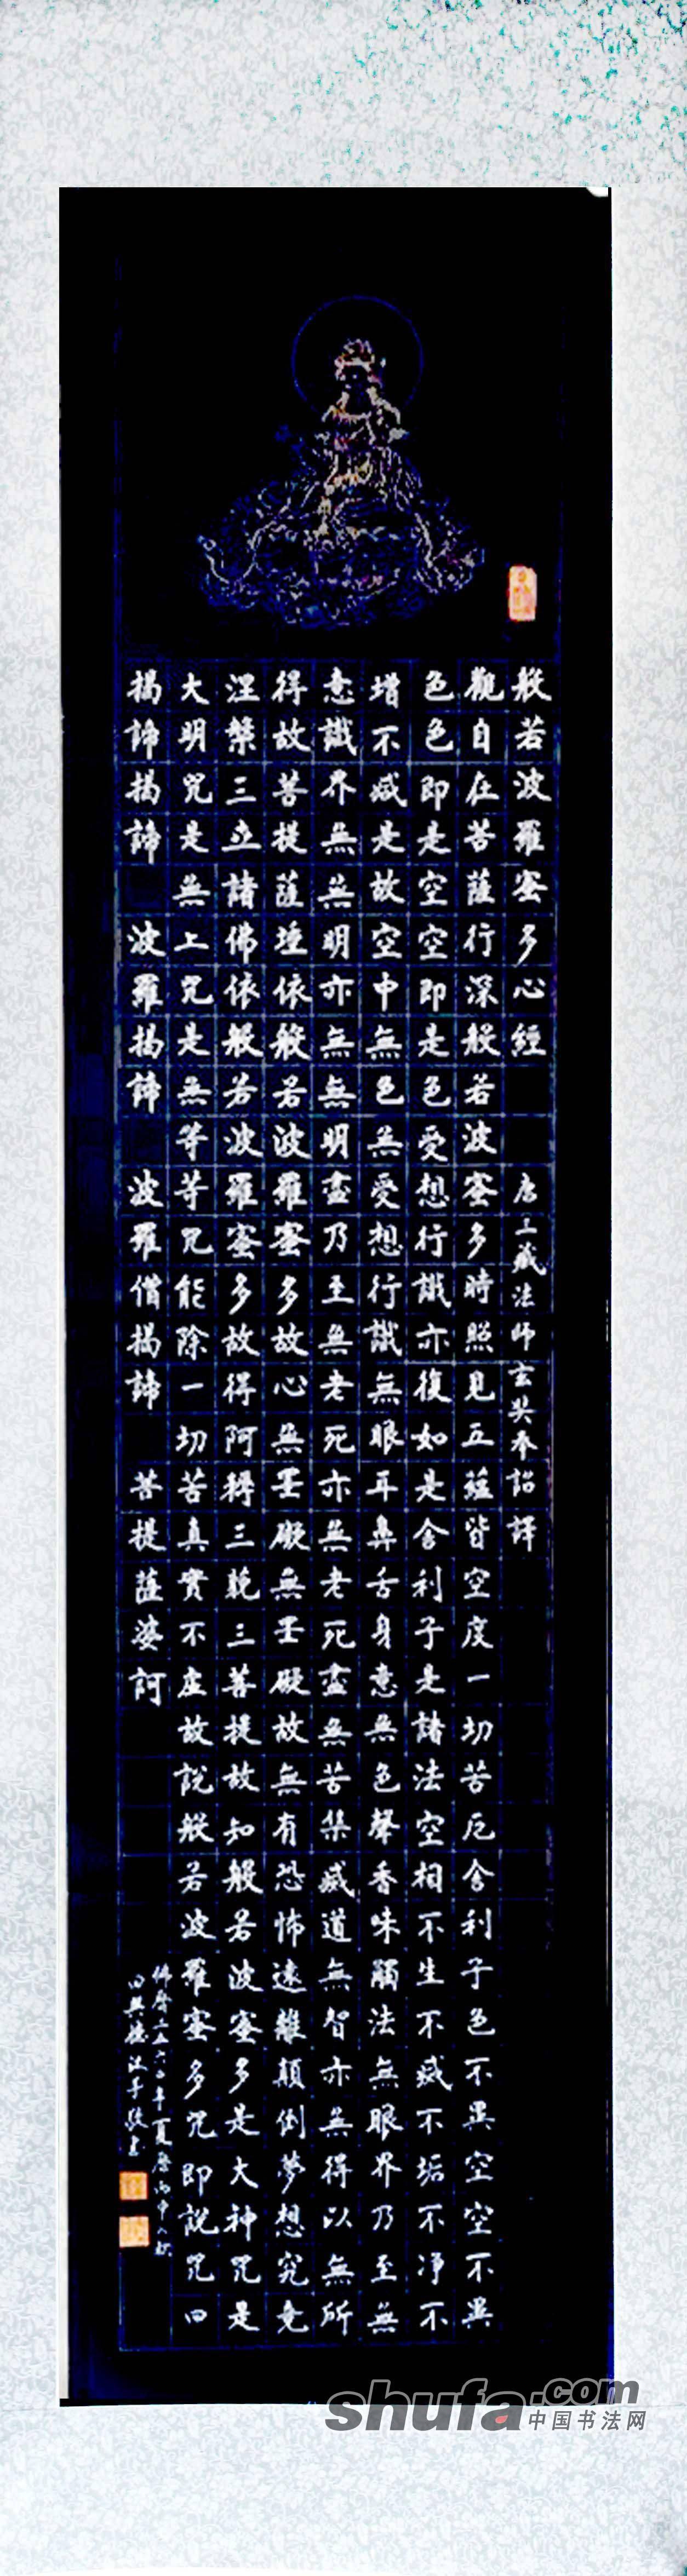 般若波羅蜜多心經 唐三藏法師玄奘奉詔譯
觀自在菩薩行深般若波蜜多時照見五蘊皆空度一切苦厄舍利子色不異空空不異
色色即是空空即是色受想行識亦復如是舍利子是諸法空相不生不滅不垢不净不
增不滅是故空中無色無受想行識無眼耳鼻舌身意無色聲香味觸法無眼界乃至無
意識界無無明亦無無明盡乃至無老死亦無老死盡無苦集滅道無智亦無得以無所
得故菩提薩埵依般若波羅蜜多故心無罣礙無罣礙故無有恐怖遠離顛倒夢想究竟
涅槃三立諸佛依般若波羅蜜多故得阿耨三藐三菩提故知般若波蜜多是大神咒是
大明咒是無上咒是無等等咒能除一切苦真實不虛故説般若波羅蜜多咒即説咒曰
揭諦揭諦 波羅揭諦 波羅僧揭諦 菩提薩婆訶
佛曆二五六二年夏曆丙申
shufa.com
中国书法网